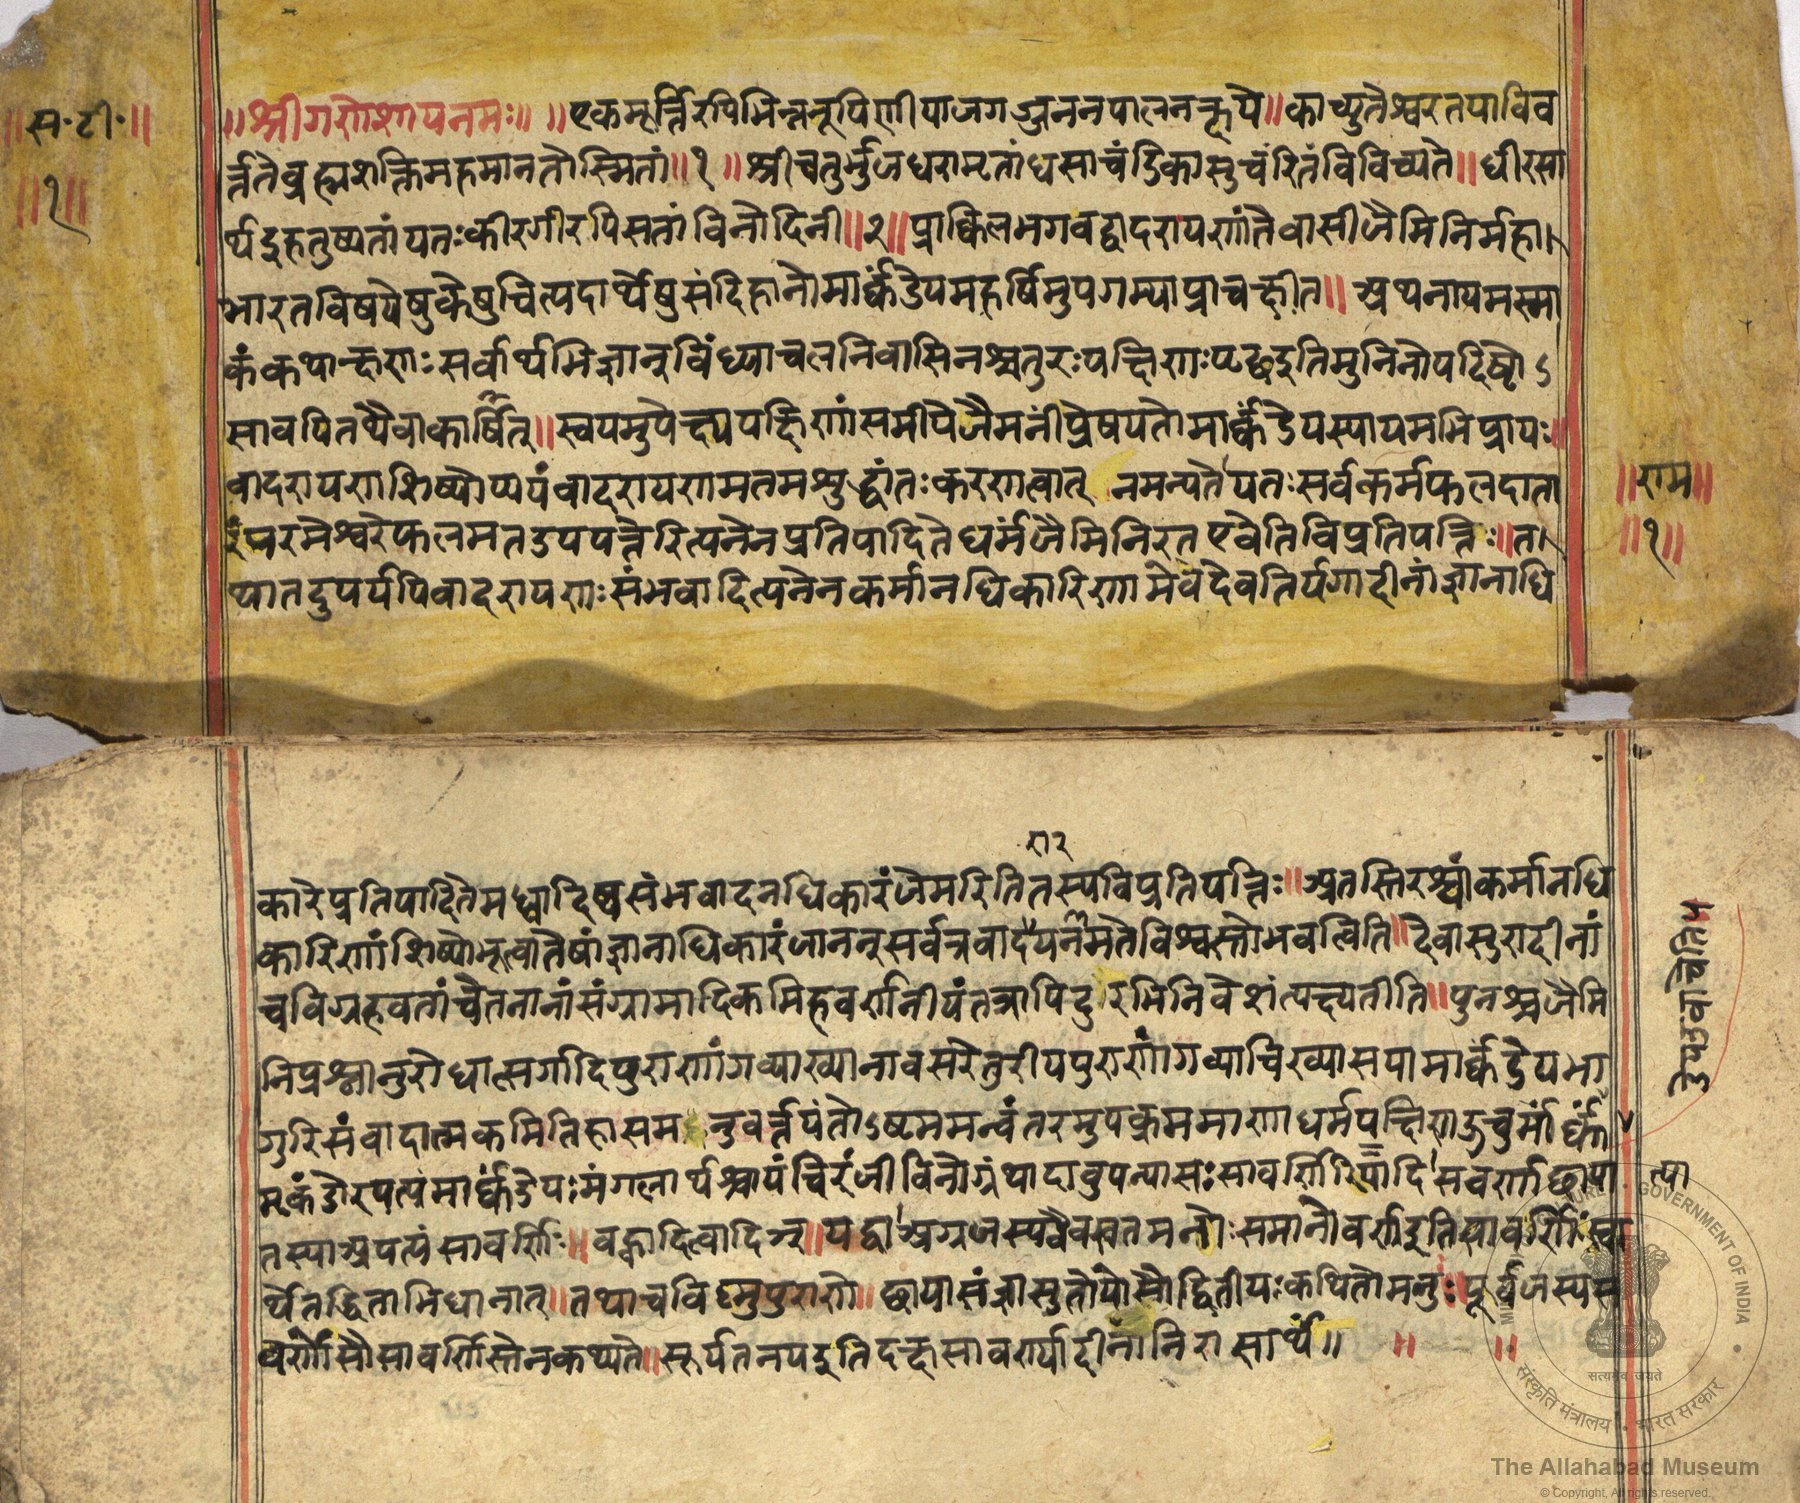 ॥स॰टी॰॥
॥१॥
॥श्रीगणेशायनमः॥ ॥एकमूर्त्तिरपिभिन्नरूपिणीयाजगज्जननपालनक्षये॥काच्युतेश्वरतयाविव
र्त्ततेब्रह्मशक्तिमहमानतोस्मितां॥१॥श्रीचतुर्भुजधरामृतांधसाचंडिकासुचरितंविविच्यते॥धीरसा
र्थइहतुष्यतांयतःकीरगीरपिसतांविनोदिनी॥२॥प्राक्किलभगवद्बादरायणांतेवासीजैमिनिर्महा
भारतविषयेषुकेषुचित्पदार्थेषुसंदिहानोमार्कंडेयमहर्षिमुपगम्याप्राक्षीत॥अथनायमस्मा
कंकथाक्षणःसर्वार्थाभिज्ञानविंध्याचलनिवासिनश्चतुरःपक्षिणःपृच्छइतिमुनिनोपदिष्टोऽ
सावपितथैवाकार्षीत्॥स्वयमुपेक्ष्यपक्षिणांसमीपेजैमनींप्रेषयतोमार्कंडेयस्यायमभिप्रायः॥
बादरायणशिष्योप्ययंबादरायणमतमशुद्धांतःकरणत्वात् नमन्यतेयतःसर्वकर्मफलदाता
रंपरमेश्वरेफलमतउपपत्तेरित्यनेनप्रतिपादितेधर्मंजैमिनिरतएवेतिविप्रतिपत्तिः॥त
थातदुपर्यपिबादरायणःसंभवादित्यनेनकर्मानधिकारिणामेवदेवतिर्यगादीनांज्ञानाधि
॥राम॥
॥१॥
णा२
कारेप्रतिपादितेमध्वादिष्वसंभवादनधिकारंजैमिरितितस्यविप्रतिपत्तिः॥अतस्तिरश्चांकर्मानधि
कारिणांशिष्योभूत्वातेषांज्ञानाधिकारंजाननुसर्वत्रबादरायनमतेविश्वस्तोभवत्विति॥देवासुरादीनां
चविग्रहवतांचेतनानांसंग्रामादिकमिहवर्णनीयंतत्रापिदुरभिनिवेशंत्यक्ष्यतीति॥पुनश्चजैमि
निप्रश्नानुरोधात्सर्गादिपुराणांगव्याख्यानावसरेतुरीयपुराणांगव्याचिख्यासयामार्कंडेयभा
गुरिसंवादात्मकमितिहासमनुवर्त्तयंतोऽष्टममन्वंतरमुपक्रममाणाधर्मपक्षिणऊचुर्मार्कं
मृकंडोरपत्यंमार्कंडेयःमंगलार्थश्चायंचिरंजीविनोग्रंथादावुपन्यासःसावर्णिरित्यादि
तस्याअपत्यंसावर्णिः॥बह्वादित्वादिञ्॥यद्वाअग्रजस्यवैवस्वतमनोःसमानोवर्णइतिसावर्णिःस्वा
र्थेतद्धिताभिधानात्॥तथाचविष्णुपुराणे॥छायासंज्ञासुतोयोसौद्वितीयःकथितोमनुःपूर्वजस्यस
वर्णोसौसावर्णिस्तेनकथ्यते॥सूर्यतनयइतिदक्षसावर्ण्यादीनांनिरासार्थं॥ ॥ ॥
The Allahabad Museum
© Copyright, All rights reserved.